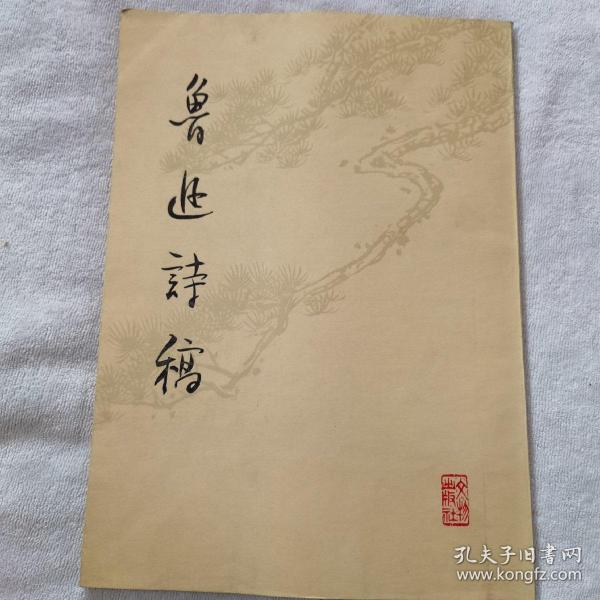 鲁迅詩稿
文物
出版社
孔夫子旧书网
www.kongfz.com